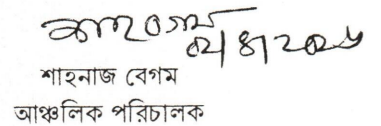 ০২/৪/২০২৬
শাহনাজ বেগম
আঞ্চলিক পরিচালক